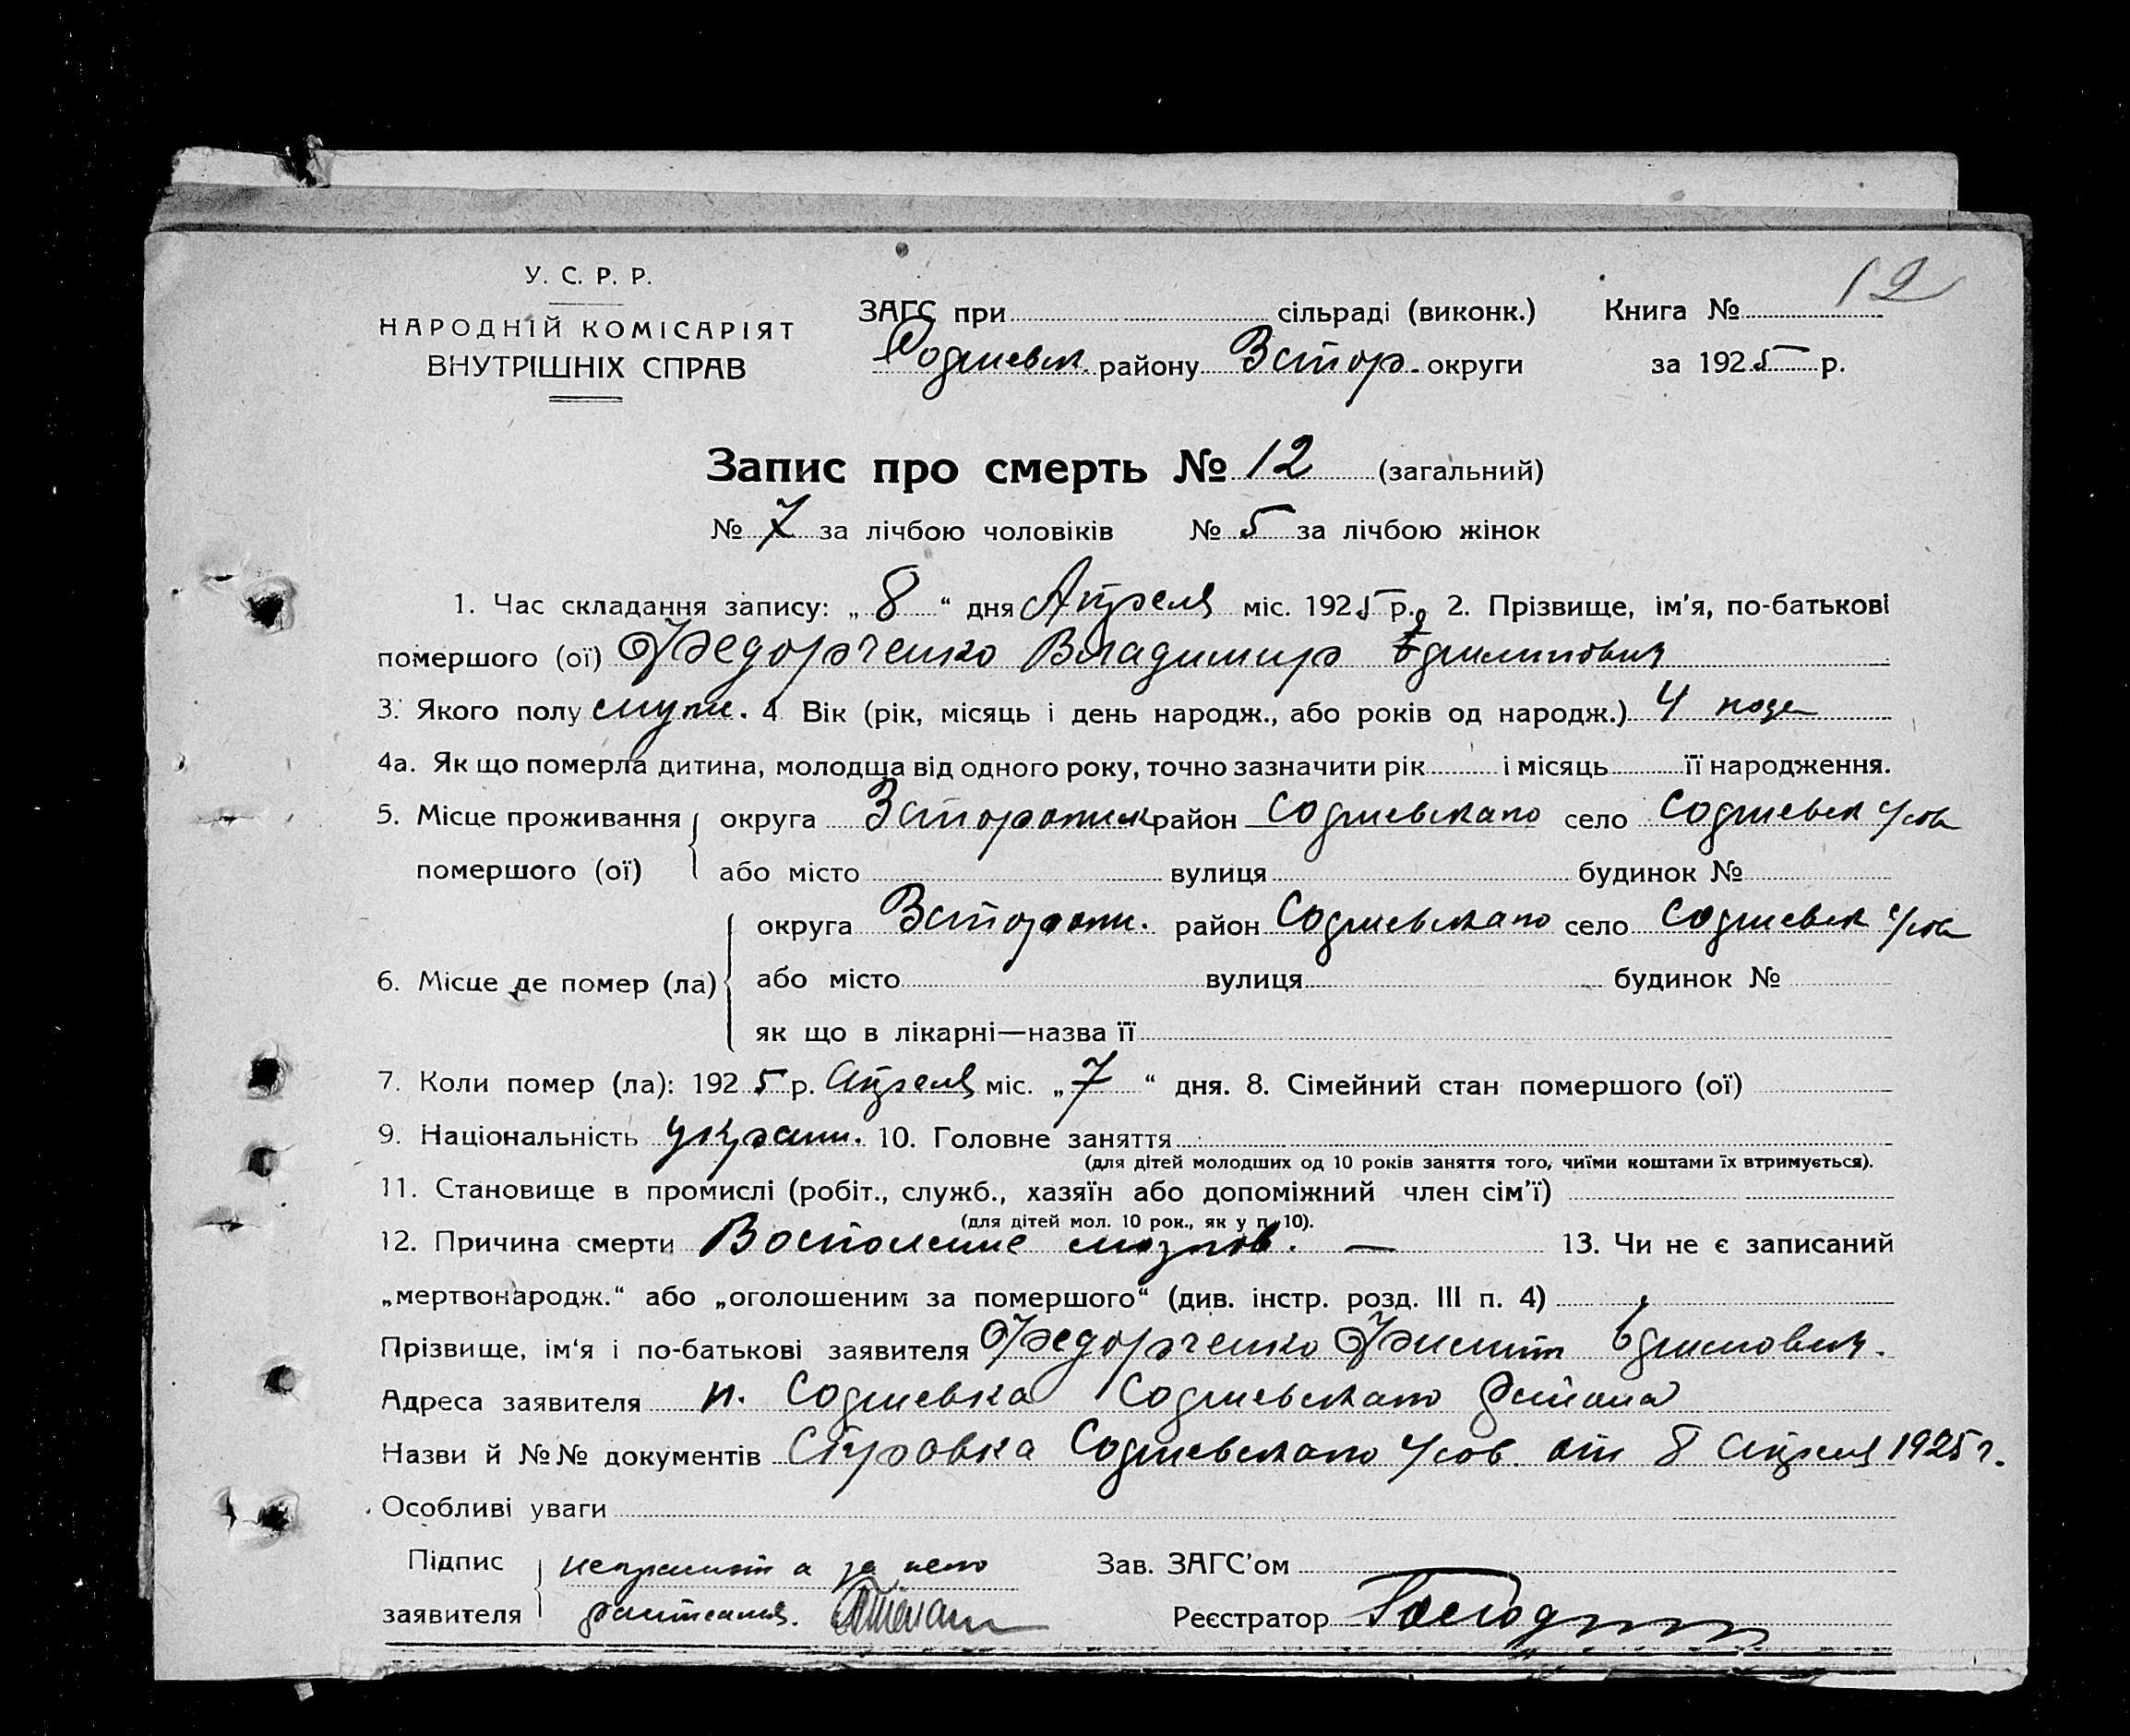 У. С. Р. Р.
НАРОДНІЙ КОМІСАРІЯТ
ВНУТРІШНІХ СПРАВ
ЗАГС при сільраді (виконк.)
району Запор. округи
Книга № 12
за 1925 р.
Запис про смерть № 12 (загальний)
№ 7 за лічбою чоловіків № 5 за лічбою жінок
1. Час складання запису: „ 8 “ дня Апреля міс. 1925 р. 2. Прізвище, ім'я, по-батькові
помершого (ої) Федорченко Владимир Филипович
3. Якого полу муж. 4 Вік (рік, місяць і день народж., або років од народж.) 4 года
4а. Як що померла дитина, молодща від одного року, точно зазначити рік і місяць її народження.
5. Місце проживання округа Запорожск район Софиевскаго село Софиевск
помершого (ої) або місто вулиця будинок №
округа Запорож. район Софиевскаго село Софиевск
6. Місце де помер (ла) або місто вулиця будинок №
як що в лікарні—назва її
7. Коли помер (ла): 1925 р. Апреля міс. „ 7 “ дня. 8. Сімейний стан помершого (ої)
9. Національність украин. 10. Головне заняття
(для дітей молодших од 10 років заняття того, чиїми коштами їх втримується).
11. Становище в промислі (робіт., служб., хазяїн або допоміжний член сім'ї)
(для дітей мол. 10 рок., як у п. 10).
12. Причина смерти Восполение мозгов. — 13. Чи не є записаний
„мертвонародж.“ або „оголошеним за помершого“ (див. інстр. розд. III п. 4)
Прізвище, ім'я і по-батькові заявителя Федорченко Филипп
Адреса заявителя п. Софиевка Софиевскаго района
Назви й №№ документів Справка Софиевскаго от 8 Апреля 1925 г.
Особливі уваги
Підпис неграмот а за него
заявителя росписался.
Зав. ЗАГС'ом
Реєстратор